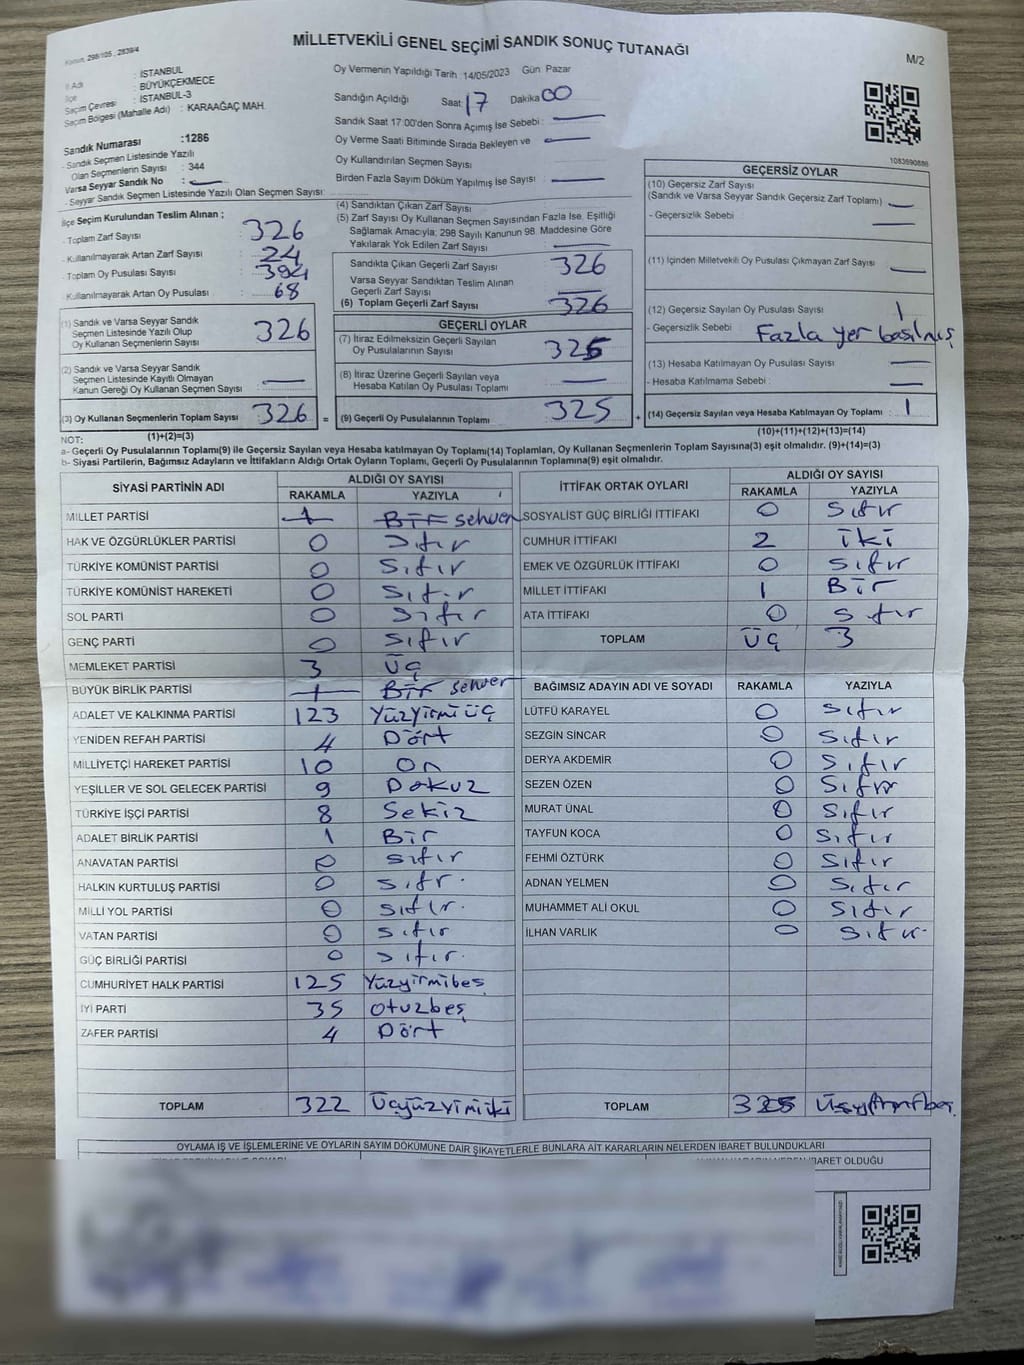 Kanun, 298/105 , 2839/4
MİLLETVEKİLİ GENEL SEÇİMİ SANDIK SONUÇ TUTANAĞI
M/2
İl Adı : İSTANBUL
İlçe : BÜYÜKÇEKMECE
Seçim Çevresi : İSTANBUL-3
Seçim Bölgesi (Mahalle Adı) : KARAAĞAÇ MAH.
Sandık Numarası :1286
- Sandık Seçmen Listesinde Yazılı
Olan Seçmenlerin Sayısı : 344
Varsa Seyyar Sandık No : —
- Seyyar Sandık Seçmen Listesinde Yazılı Olan Seçmen Sayısı:
Oy Vermenin Yapıldığı Tarih 14/05/2023 Gün: Pazar
Sandığın Açıldığı Saat 17 Dakika 00
Sandık Saat 17:00'den Sonra Açımış İse Sebebi : —
Oy Verme Saati Bitiminde Sırada Bekleyen ve —
Oy Kullandırılan Seçmen Sayısı
Birden Fazla Sayım Döküm Yapılmış İse Sayısı : —
1083690886
İlçe Seçim Kurulundan Teslim Alınan ;
- Toplam Zarf Sayısı : 326
- Kullanılmayarak Artan Zarf Sayısı : 24
- Toplam Oy Pusulası Sayısı : 394
- Kullanılmayarak Artan Oy Pusulası : 68
(1) Sandık ve Varsa Seyyar Sandık
Seçmen Listesinde Yazılı Olup
Oy Kullanan Seçmenlerin Sayısı 326
(2) Sandık ve Varsa Seyyar Sandık
Seçmen Listesinde Kayıtlı Olmayan
Kanun Gereği Oy Kullanan Seçmen Sayısı —
(3) Oy Kullanan Seçmenlerin Toplam Sayısı 326 =
(1)+(2)=(3)
(4) Sandıktan Çıkan Zarf Sayısı
(5) Zarf Sayısı Oy Kullanan Seçmen Sayısından Fazla İse, Eşitliği
Sağlamak Amacıyla; 298 Sayılı Kanunun 98. Maddesine Göre
Yakılarak Yok Edilen Zarf Sayısı —
Sandıkta Çıkan Geçerli Zarf Sayısı 326
Varsa Seyyar Sandıktan Teslim Alınan
Geçerli Zarf Sayısı —
(6) Toplam Geçerli Zarf Sayısı 326
GEÇERLİ OYLAR
(7) İtiraz Edilmeksizin Geçerli Sayılan
Oy Pusulalarının Sayısı 325
(8) İtiraz Üzerine Geçerli Sayılan veya
Hesaba Katılan Oy Pusulası Toplamı —
(9) Geçerli Oy Pusulalarının Toplamı 325 +
GEÇERSİZ OYLAR
(10) Geçersiz Zarf Sayısı
(Sandık ve Varsa Seyyar Sandık Geçersiz Zarf Toplamı) —
- Geçersizlik Sebebi —
(11) İçinden Milletvekili Oy Pusulası Çıkmayan Zarf Sayısı —
(12) Geçersiz Sayılan Oy Pusulası Sayısı 1
- Geçersizlik Sebebi : Fazla yer basılmış
(13) Hesaba Katılmayan Oy Pusulası Sayısı —
- Hesaba Katılmama Sebebi : —
(14) Geçersiz Sayılan veya Hesaba Katılmayan Oy Toplamı : 1
(10)+(11)+(12)+(13)=(14)
NOT:
a- Geçerli Oy Pusulalarının Toplamı(9) ile Geçersiz Sayılan veya Hesaba katılmayan Oy Toplamı(14) Toplamları, Oy Kullanan Seçmenlerin Toplam Sayısına(3) eşit olmalıdır. (9)+(14)=(3)
b- Siyasi Partilerin, Bağımsız Adayların ve İttifakların Aldığı Ortak Oyların Toplamı, Geçerli Oy Pusulalarının Toplamına(9) eşit olmalıdır.
SİYASİ PARTİNİN ADI ALDIĞI OY SAYISI
RAKAMLA YAZIYLA
MİLLET PARTİSİ 1 Bir sehven
HAK VE ÖZGÜRLÜKLER PARTİSİ 0 Sıfır
TÜRKİYE KOMÜNİST PARTİSİ 0 Sıfır
TÜRKİYE KOMÜNİST HAREKETİ 0 Sıfır
SOL PARTİ 0 Sıfır
GENÇ PARTİ 0 Sıfır
MEMLEKET PARTİSİ 3 Üç
BÜYÜK BİRLİK PARTİSİ 1 Bir sehven
ADALET VE KALKINMA PARTİSİ 123 Yüzyirmi üç
YENİDEN REFAH PARTİSİ 4 Dört
MİLLİYETÇİ HAREKET PARTİSİ 10 On
YEŞİLLER VE SOL GELECEK PARTİSİ 9 Dokuz
TÜRKİYE İŞÇİ PARTİSİ 8 Sekiz
ADALET BİRLİK PARTİSİ 1 Bir
ANAVATAN PARTİSİ 0 Sıfır
HALKIN KURTULUŞ PARTİSİ 0 Sıfır
MİLLİ YOL PARTİSİ 0 Sıfır
VATAN PARTİSİ 0 Sıfır
GÜÇ BİRLİĞİ PARTİSİ 0 Sıfır
CUMHURİYET HALK PARTİSİ 125 Yüzyirmibeş
İYİ PARTİ 35 Otuzbeş
ZAFER PARTİSİ 4 Dört
TOPLAM 322 Üçyüzyirmiiki
İTTİFAK ORTAK OYLARI ALDIĞI OY SAYISI
RAKAMLA YAZIYLA
SOSYALİST GÜÇ BİRLİĞİ İTTİFAKI 0 Sıfır
CUMHUR İTTİFAKI 2 İki
EMEK VE ÖZGÜRLÜK İTTİFAKI 0 Sıfır
MİLLET İTTİFAKI 1 Bir
ATA İTTİFAKI 0 Sıfır
TOPLAM Üç 3
BAĞIMSIZ ADAYIN ADI VE SOYADI RAKAMLA YAZIYLA
LÜTFÜ KARAYEL 0 Sıfır
SEZGİN SİNCAR 0 Sıfır
DERYA AKDEMİR 0 Sıfır
SEZEN ÖZEN 0 Sıfır
MURAT ÜNAL 0 Sıfır
TAYFUN KOCA 0 Sıfır
FEHMİ ÖZTÜRK 0 Sıfır
ADNAN YELMEN 0 Sıfır
MUHAMMET ALİ OKUL 0 Sıfır
İLHAN VARLIK 0 Sıfır
TOPLAM 325
OYLAMA İŞ VE İŞLEMLERİNE VE OYLARIN SAYIM DÖKÜMÜNE DAİR ŞİKAYETLERLE BUNLARA AİT KARARLARIN NELERDEN İBARET BULUNDUKLARI
İBARET OLDUĞU